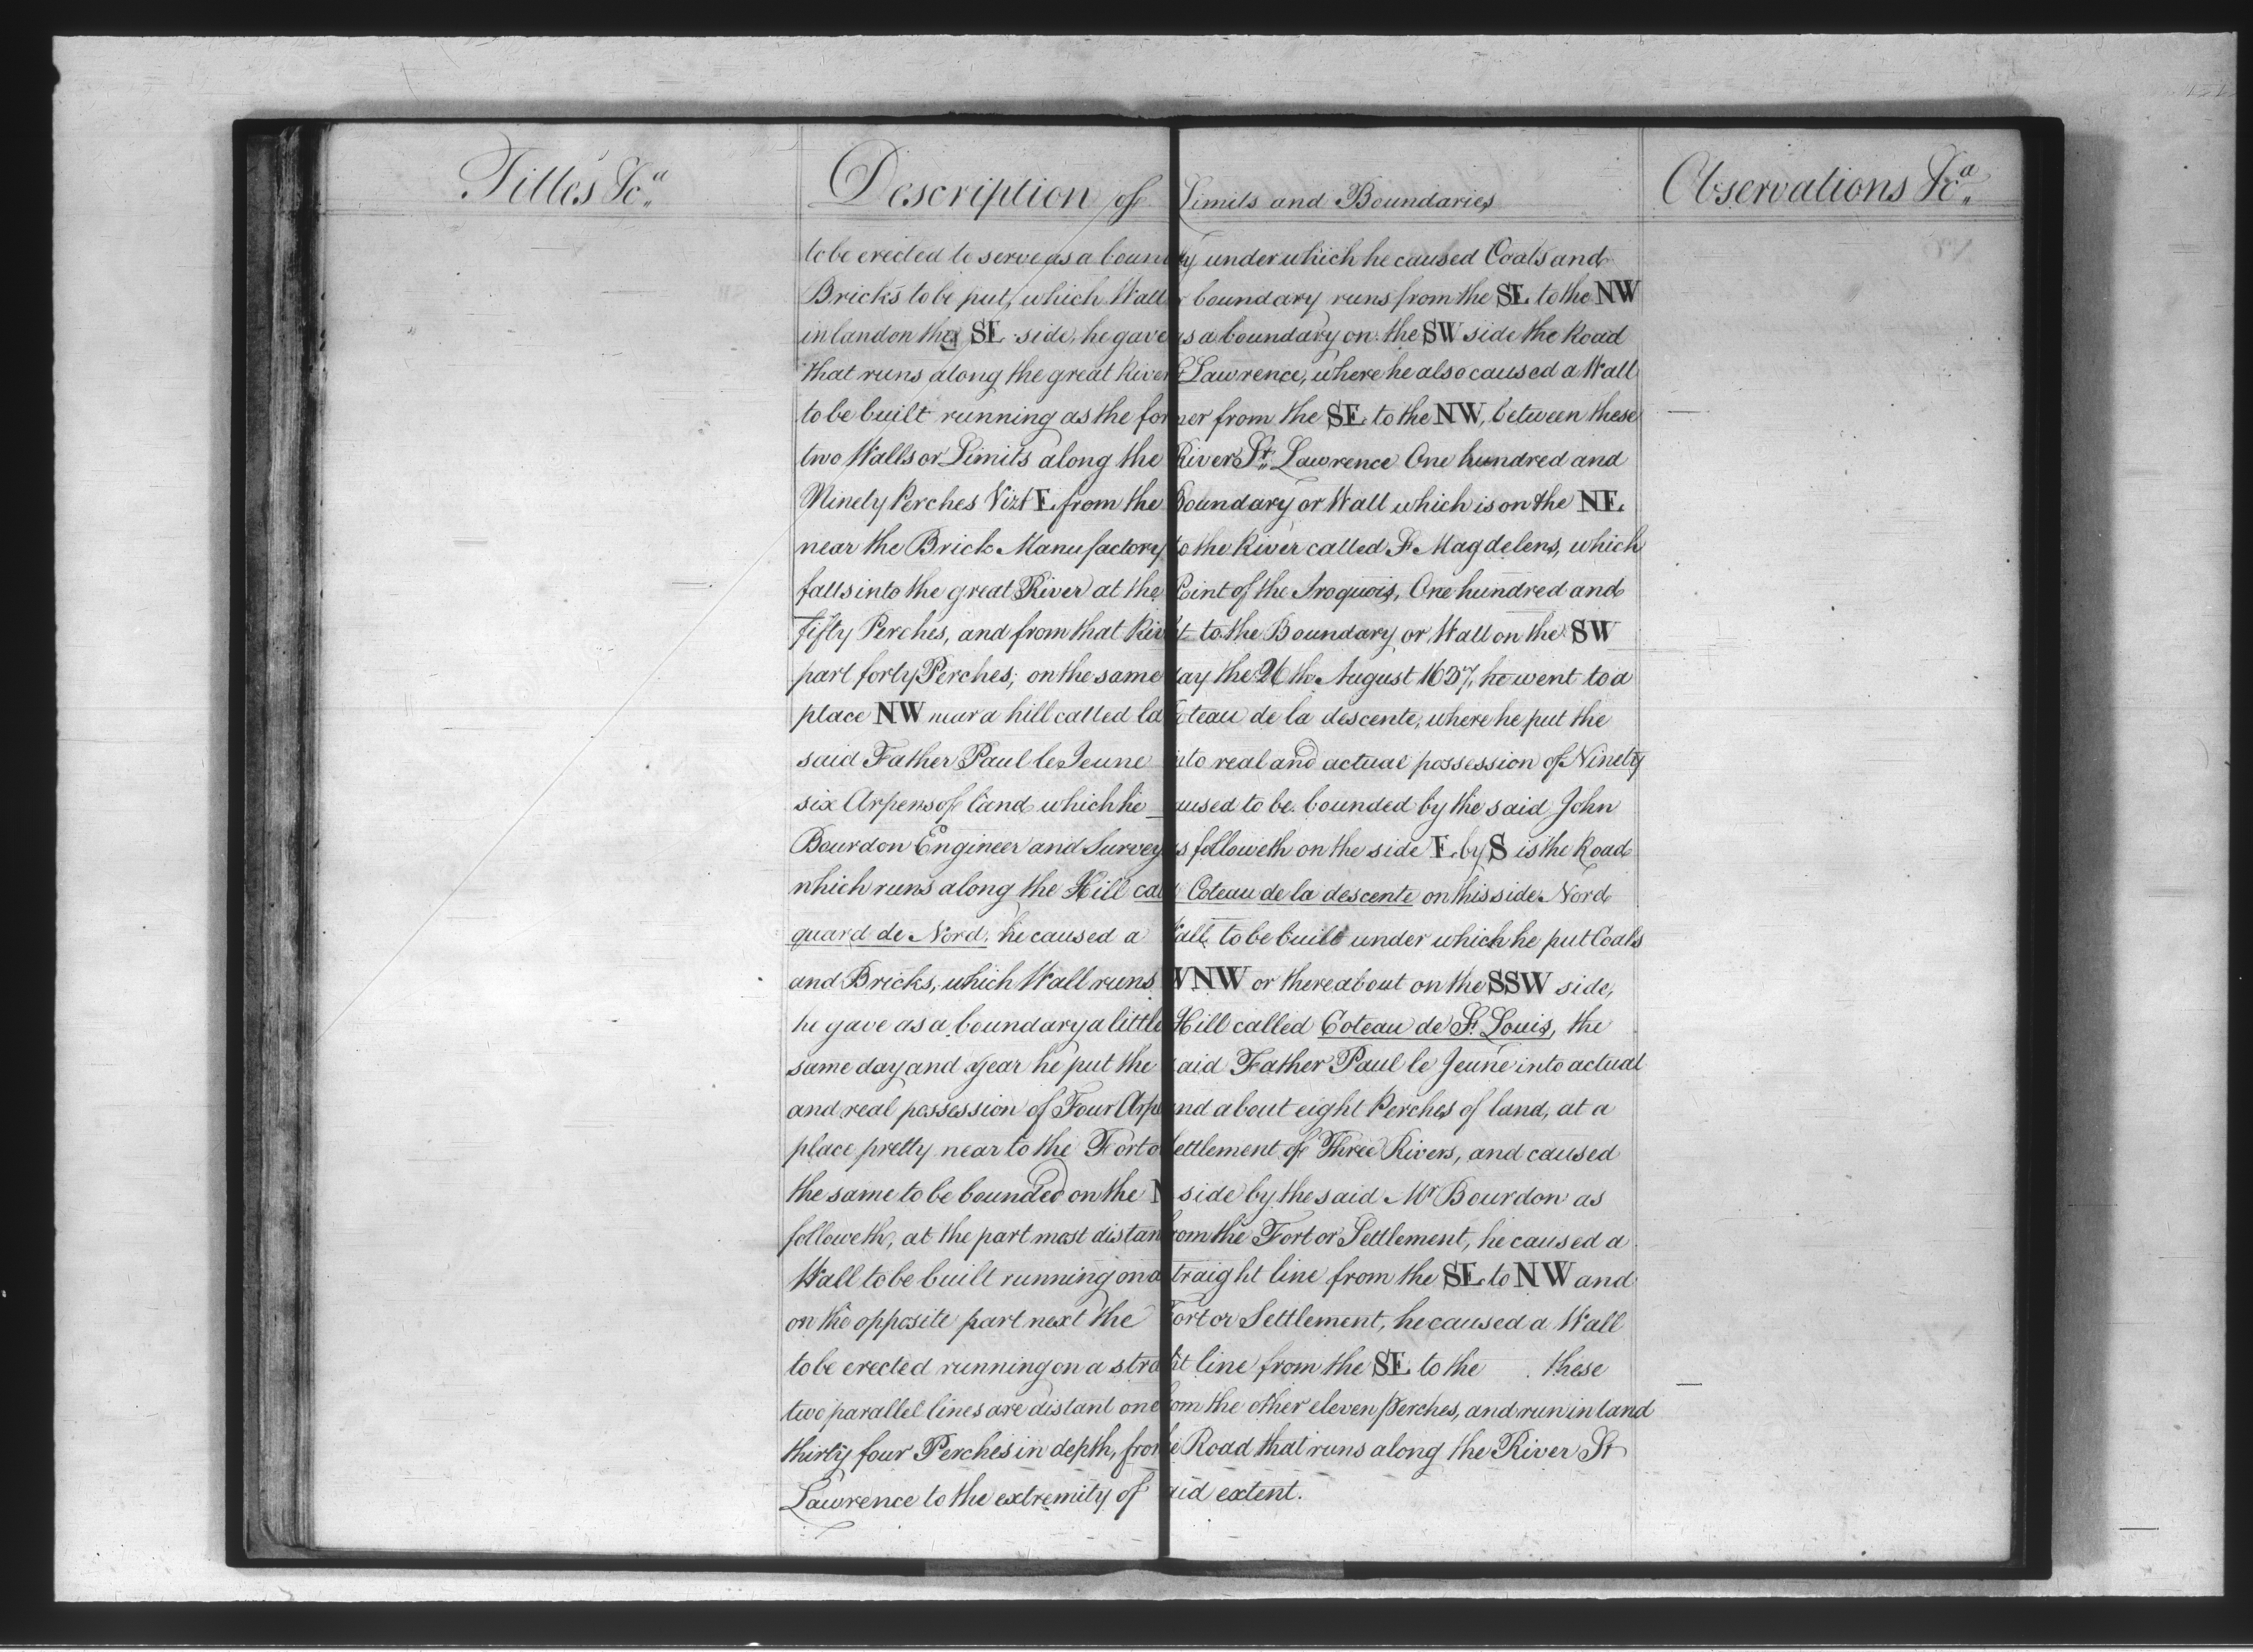 Titles &ca
Description of Limits and Boundaries
Observations &ca
to be erected to serve as a boun ry under which he caused Coals and
Bricks to be put, which Wall boundary runs from the SE to the NW
inland on the SE side, he gave as a boundary on the SW side the Road
that runs along the great River St Lawrence, where he also caused a Wall
to be built running as the former from the SE to the NW, between these
two Walls or Limits along the River St Lawrence One hundred and
Ninety Perches Vizt E from the Boundary or Wall which is on the NE
near the Brick Manufactory to the River called St Magdelens, which
falls into the great River at the Point of the Iroquois, One hundred and
fifty Perches, and from that Riv to the Boundary or Wall on the SW
part forty Perches; on the same day the 26th August 1637, he went to a
place NW near a hill called la Coteau de la descente, where he put the
said Father Paul le Jeune into real and actual possession of Ninety
six Arpens of land which he caused to be bounded by the said John
Bourdon Engineer and Survey as followeth on the side E by S is the Road
which runs along the Hill call Coteau de la descente on this side Nord
quard de Nord, he caused a Wall to be built under which he put Coals
and Bricks, which Wall runs WNW or thereabout on the SSW side,
he gave as a boundary a little Hill called Coteau de St Louis, the
same day and year he put the said Father Paul le Jeune into actual
and real possession of Four Arp and about eight Perches of land, at a
place pretty near to the Fort o Settlement of Three Rivers, and caused
the same to be bounded on the N side by the said Mr Bourdon as
followeth, at the part most distan from the Fort or Settlement, he caused a
Wall to be built running on a straight line from the SE to NW and
on the opposite part next the Fort or Settlement, he caused a Wall
to be erected running on a stra ht line from the SE to the . these
two parallel lines are distant one from the other eleven perches, and run inland
thirty four Perches in depth, fro the Road that runs along the River St
Lawrence to the extremity of said extent.